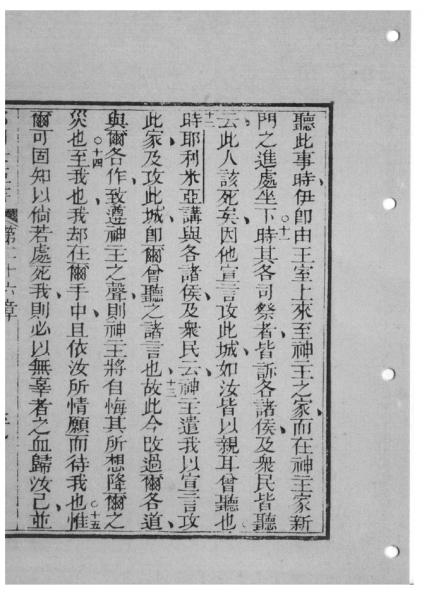 聽此事時伊卽由王室上來至神王之家而在神王家新
門之進處坐下○十一時其各司祭者皆訴各諸侯及衆民皆聽
云此人該死矣因他宣言攻此城如汝皆以親耳曾聽也○
十二時耶利米亞講與各諸侯及衆民云神王遣我以宣言攻
此家及攻此城卽爾曾聽之諸言也○十三故此今改過爾各道
與爾各作致遵神王之聲則神王將自悔其所想降爾之
災也○十四至我也我却在爾手中且依汝所情願而待我也○十五惟
爾可固知以倘若處死我則必以無辜者之血歸汝己並
第二十六章